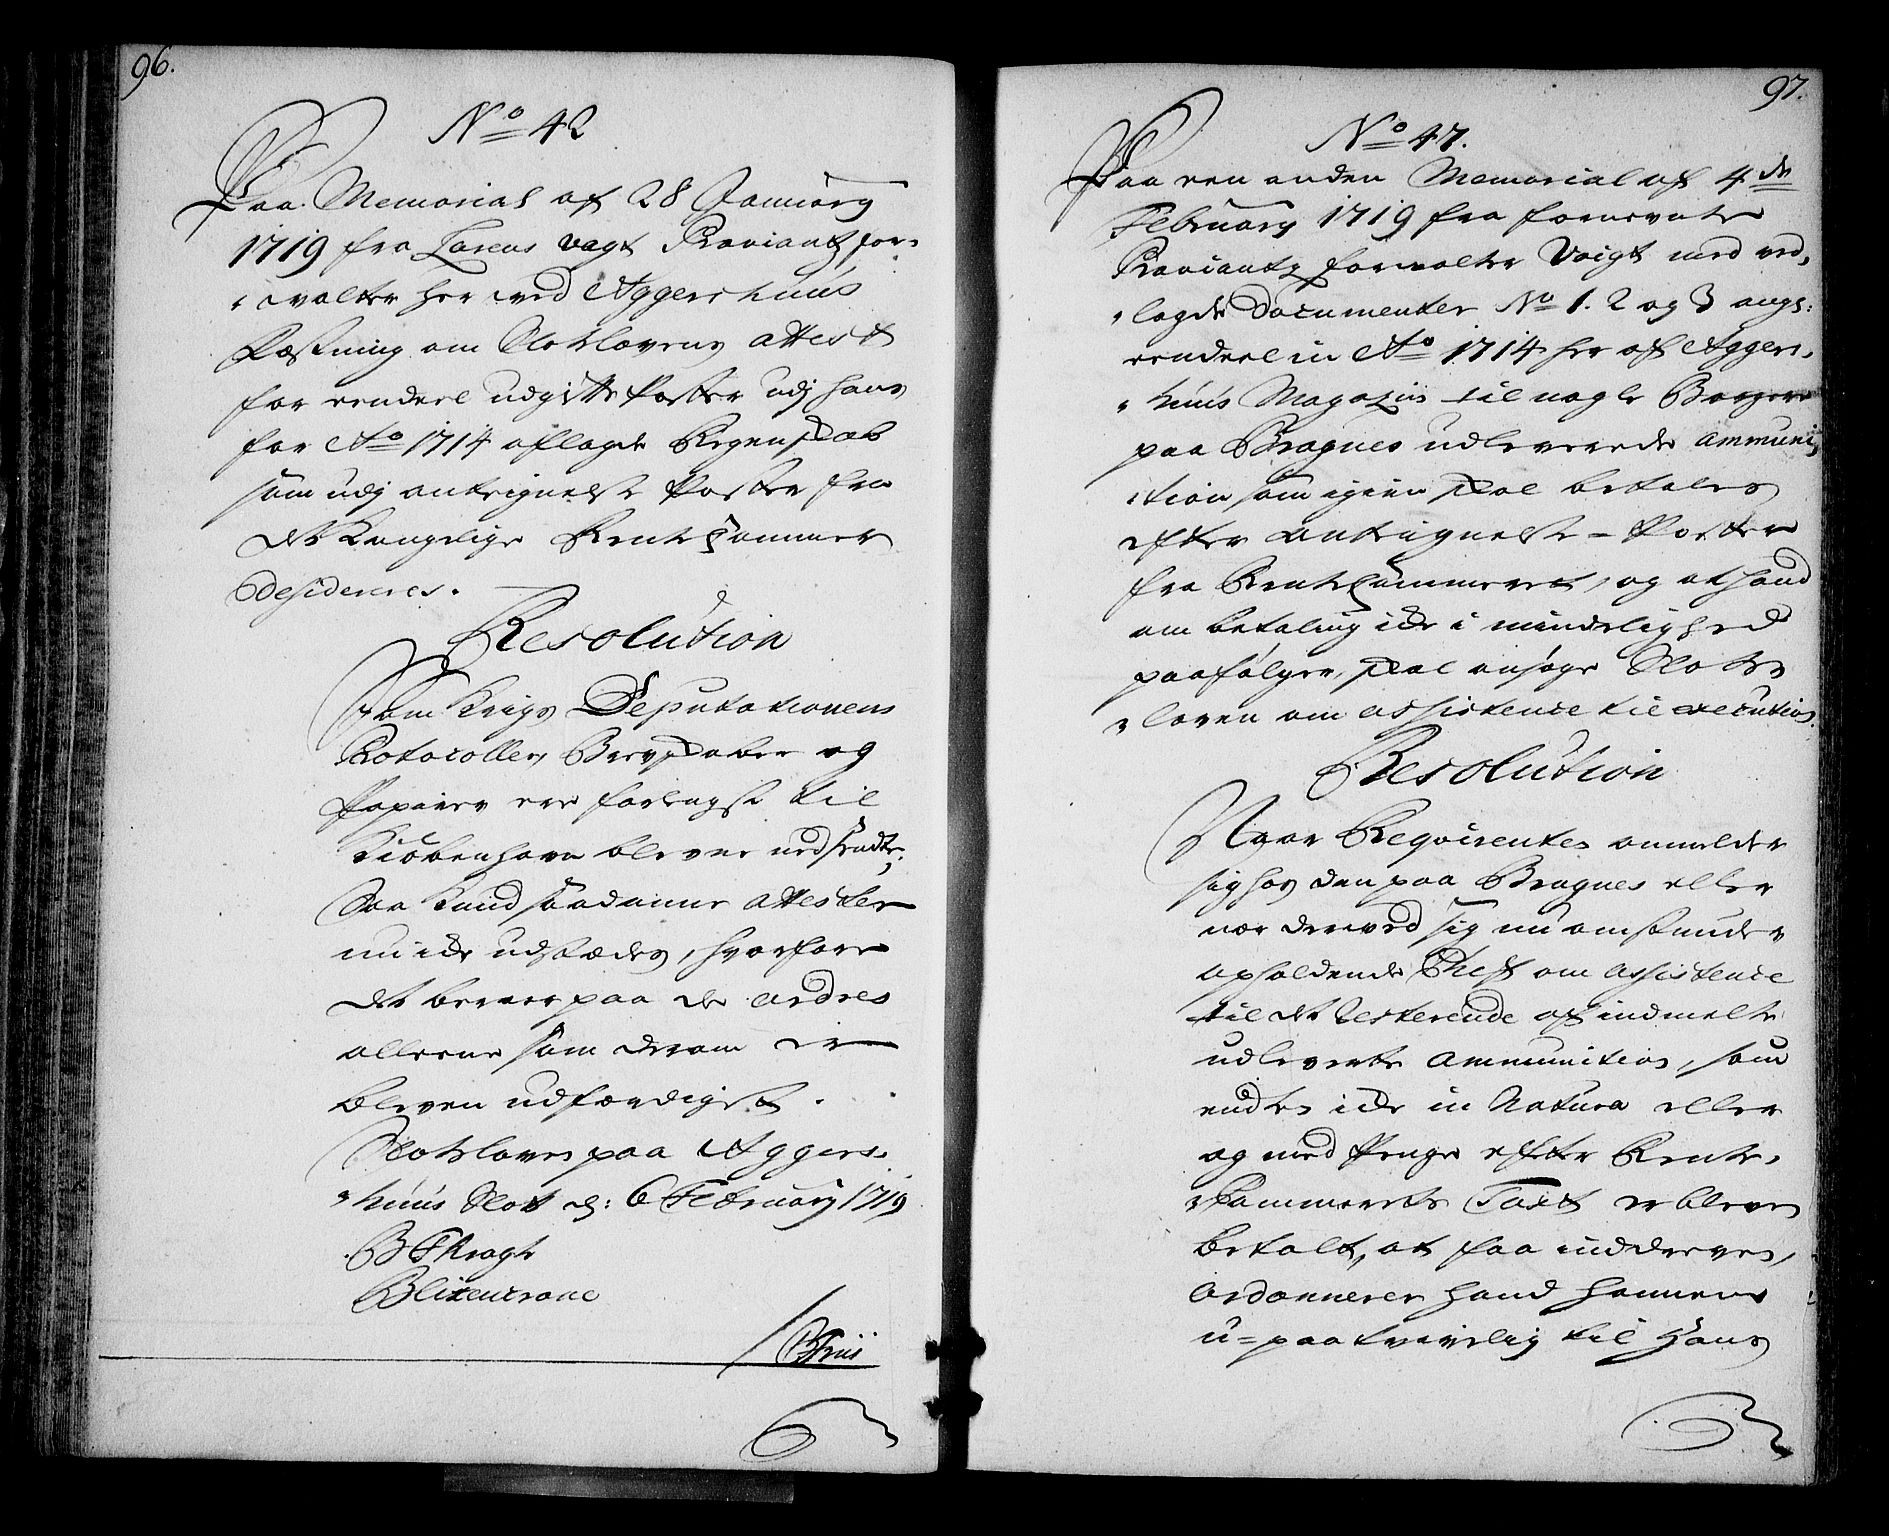 96.
No 42
Paa Memorial af 28 Januarij
1719 fra Larens Vagt Proviantz for-
valter her ved Aggershuus
Fæstning om Slotslovens attest
for eendeel udgifts Poster udj hans
for Ao 1714 aflagde Regenskab
som udj antegnelse Poster fra
det Kongelige Rente Cammer
Desidereres.
Resolution
Som Krigs Deputationens
Protocoller, Brevskaber og
Papirer ere forlengst til
Kiøbenhavn blevne nedsendte,
Saa kand saadanne attester
nu icke udstædes, hvorfore
det beroer paa de ordres
alleene som derom er
bleven udfærdiget.
Slotsloven paa Aggers-
huus Slot d: 6 February 1719
B F Kragh
Blixencrone
/ B Friis
97.
No 47.
Paa een anden Memorial af 4de
February 1719 fra fornevnte
Proviantz forvalter Voigt med ved-
lagde Documenter No 1. 2 og 3 ang:
eendeel in Ao 1714 her af Aggers-
huus Magazin til nogle Borgere
paa Bragnes udleverede ammuni-
tion som igien skal betales
efter antegnelse-Poster
fra Rentecammeret, og at hand
om betaling icke i mindelighed
paafølger, skal ansøge Slots-
loven om assistence til execution.
Resolution
Naar Requirenten anmelder
sig hos den paa Bragnes eller
nær derved sig nu omstunder
opholdende Chef om assistence
til det resterende af indmelte
udleverte ammunition, som
endten icke in Natura eller
og med Penge efter Rente-
Kammerets Taxt er bleven
betalt, at faa inddreven,
ordonnerer hand hannem
u-paatvivlig til hans